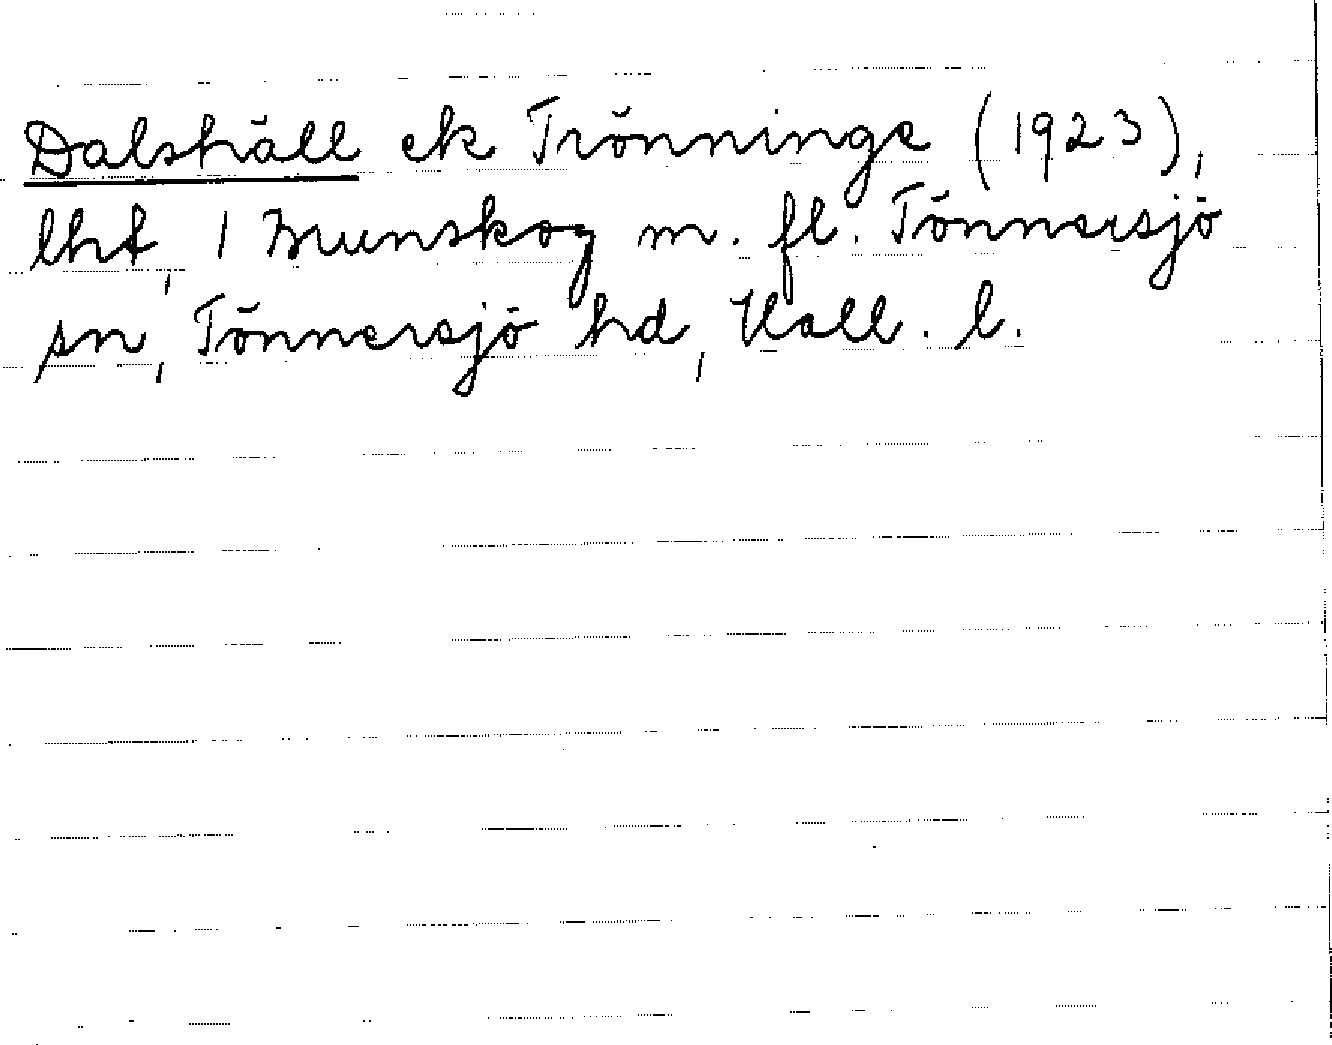 Dalshäll ek Trönninge (1923),
lht, 1 Brunskog m. fl. Tönnersjö
sn, Tönnersjö hd, Hall. l.